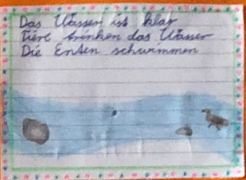 Das Wasser ist klar
Tiere trinken das Wasser
Die Enten schwimmen